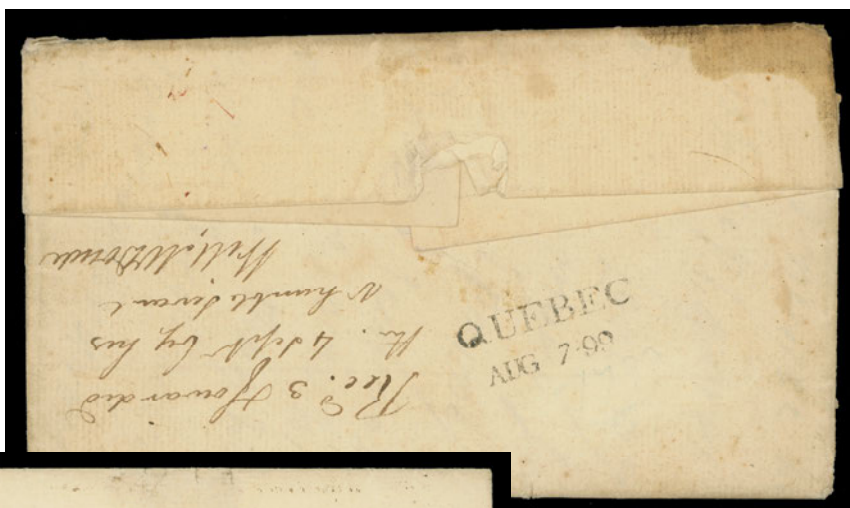 QUEBEC
AUG 7·99
Rec.d 3 & forwarded
the. 4 Sept by his
humble Servt
Will